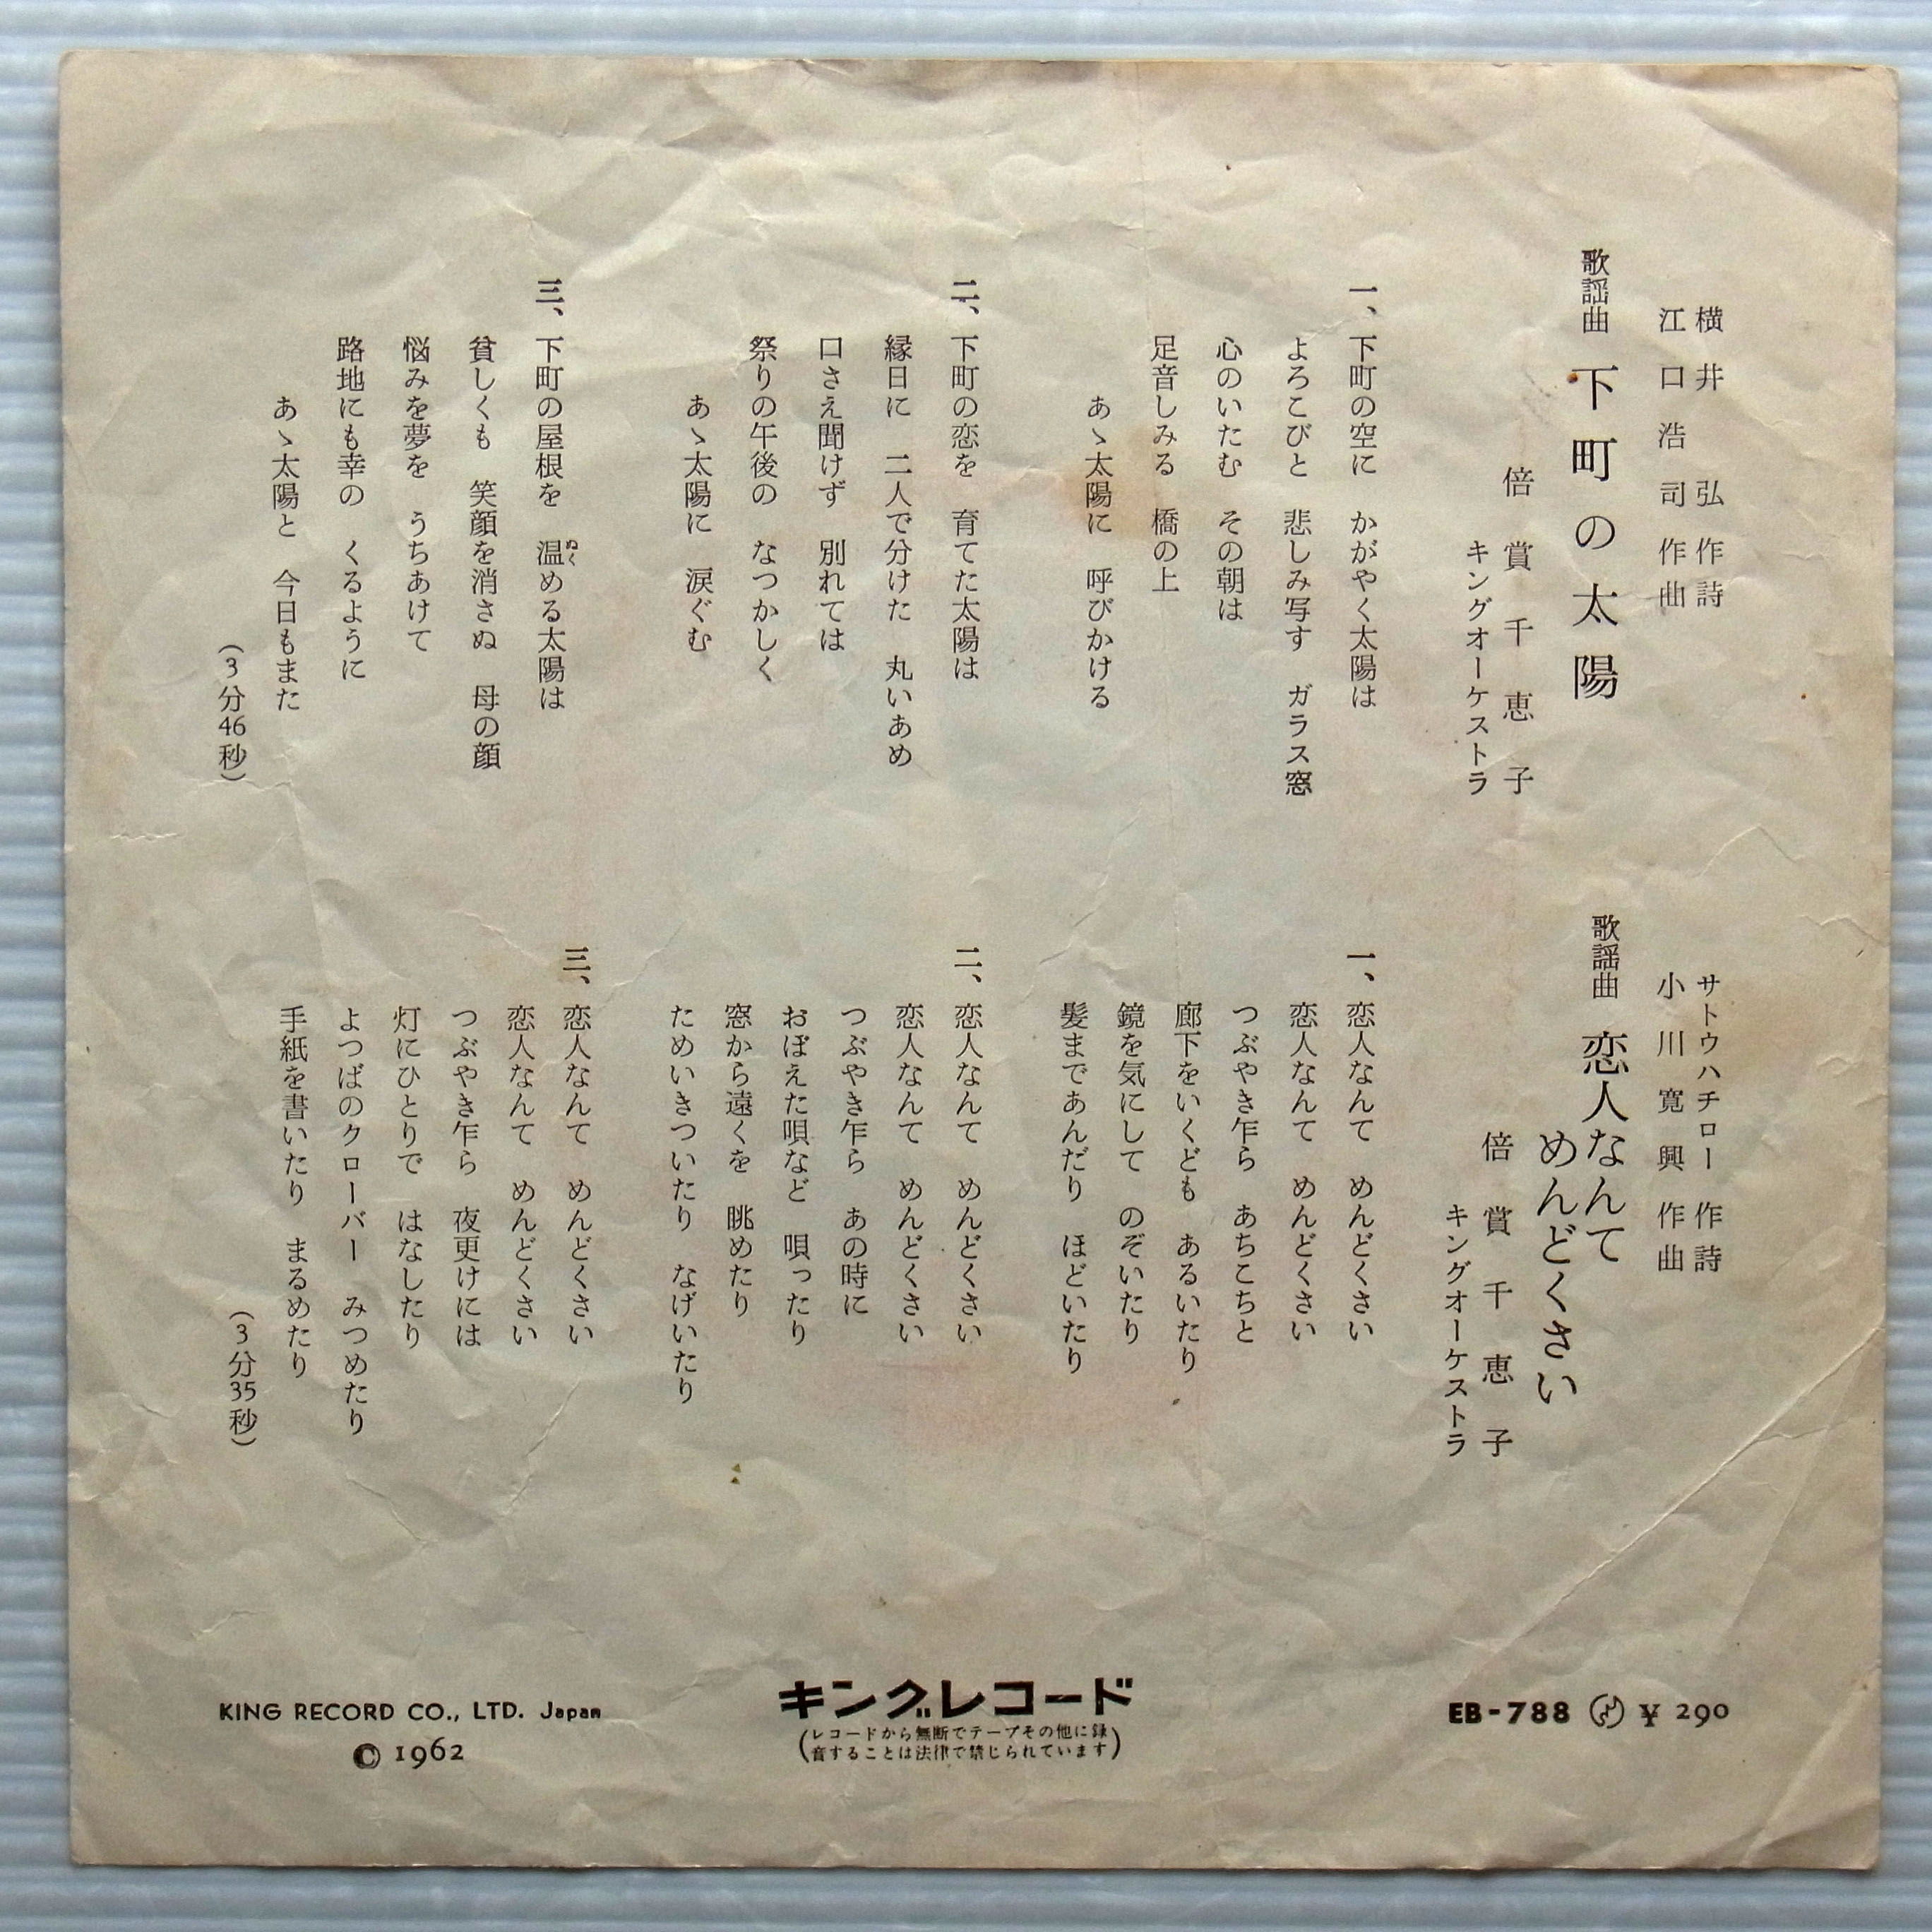 横井弘 作詩
江口浩司 作曲
歌謡曲 下町の太陽
倍賞千恵子
キングオーケストラ
一、下町の空に かがやく太陽は
よろこびと 悲しみ写す ガラス窓
心のいたむ その朝は
足音しみる 橋の上
あゝ太陽に 呼びかける
二、下町の恋を 育てた太陽は
縁日に 二人で分けた 丸いあめ
口さえ聞けず 別れては
祭りの午後の なつかしく
あゝ太陽に 涙ぐむ
三、下町の屋根を 温める太陽は
ぬく
貧しくも 笑顔を消さぬ 母の顔
悩みを夢を うちあけて
路地にも幸の くるように
あゝ太陽と 今日もまた
(3分46秒)
サトウハチロー 作詩
小川寛興 作曲
歌謡曲 恋人なんて
めんどくさい
倍賞千恵子
キングオーケストラ
一、恋人なんて めんどくさい
恋人なんて めんどくさい
つぶやき乍ら あちこちと
廊下をいくども あるいたり
鏡を気にして のぞいたり
髪まであんだり ほどいたり
二、恋人なんて めんどくさい
恋人なんて めんどくさい
つぶやき乍ら あの時に
おぼえた唄など 唄ったり
窓から遠くを 眺めたり
ためいきついたり なげいたり
三、恋人なんて めんどくさい
恋人なんて めんどくさい
つぶやき乍ら 夜更けには
灯にひとりで はなしたり
よつばのクローバー みつめたり
手紙を書いたり まるめたり
(3分35秒)
KING RECORD CO., LTD. Japan
© 1962
キングレコード
(レコードから無断でテープその他に録
音することは法律で禁じられています)
EB-788 ¥ 290